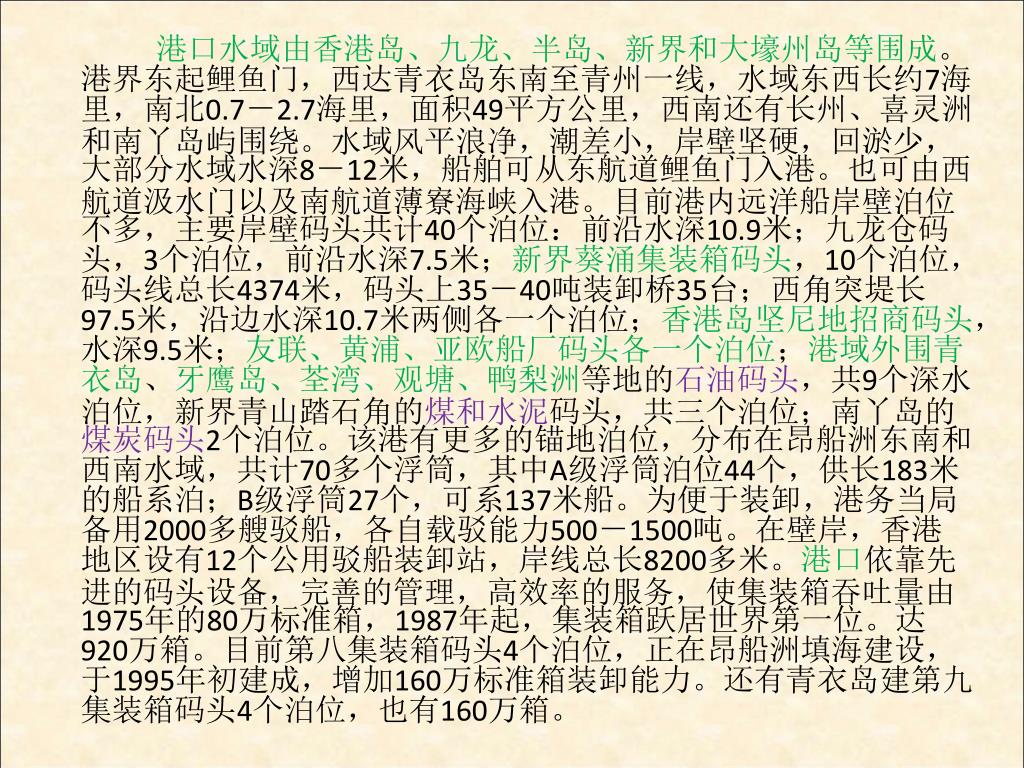 港口水域由香港岛、九龙、半岛、新界和大壕州岛等围成。
港界东起鲤鱼门，西达青衣岛东南至青州一线，水域东西长约7海
里，南北0.7－2.7海里，面积49平方公里，西南还有长州、喜灵洲
和南丫岛屿围绕。水域风平浪净，潮差小，岸壁坚硬，回淤少，
大部分水域水深8－12米，船舶可从东航道鲤鱼门入港。也可由西
航道汲水门以及南航道薄寮海峡入港。目前港内远洋船岸壁泊位
不多，主要岸壁码头共计40个泊位：前沿水深10.9米；九龙仓码
头，3个泊位，前沿水深7.5米；新界葵涌集装箱码头，10个泊位，
码头线总长4374米，码头上35－40吨装卸桥35台；西角突堤长
97.5米，沿边水深10.7米两侧各一个泊位；香港岛坚尼地招商码头，
水深9.5米；友联、黄浦、亚欧船厂码头各一个泊位；港域外围青
衣岛、牙鹰岛、荃湾、观塘、鸭梨洲等地的石油码头，共9个深水
泊位，新界青山踏石角的煤和水泥码头，共三个泊位；南丫岛的
煤炭码头2个泊位。该港有更多的锚地泊位，分布在昂船洲东南和
西南水域，共计70多个浮筒，其中A级浮筒泊位44个，供长183米
的船系泊；B级浮筒27个，可系137米船。为便于装卸，港务当局
备用2000多艘驳船，各自载驳能力500－1500吨。在壁岸，香港
地区设有12个公用驳船装卸站，岸线总长8200多米。港口依靠先
进的码头设备，完善的管理，高效率的服务，使集装箱吞吐量由
1975年的80万标准箱，1987年起，集装箱跃居世界第一位。达
920万箱。目前第八集装箱码头4个泊位，正在昂船洲填海建设，
于1995年初建成，增加160万标准箱装卸能力。还有青衣岛建第九
集装箱码头4个泊位，也有160万箱。